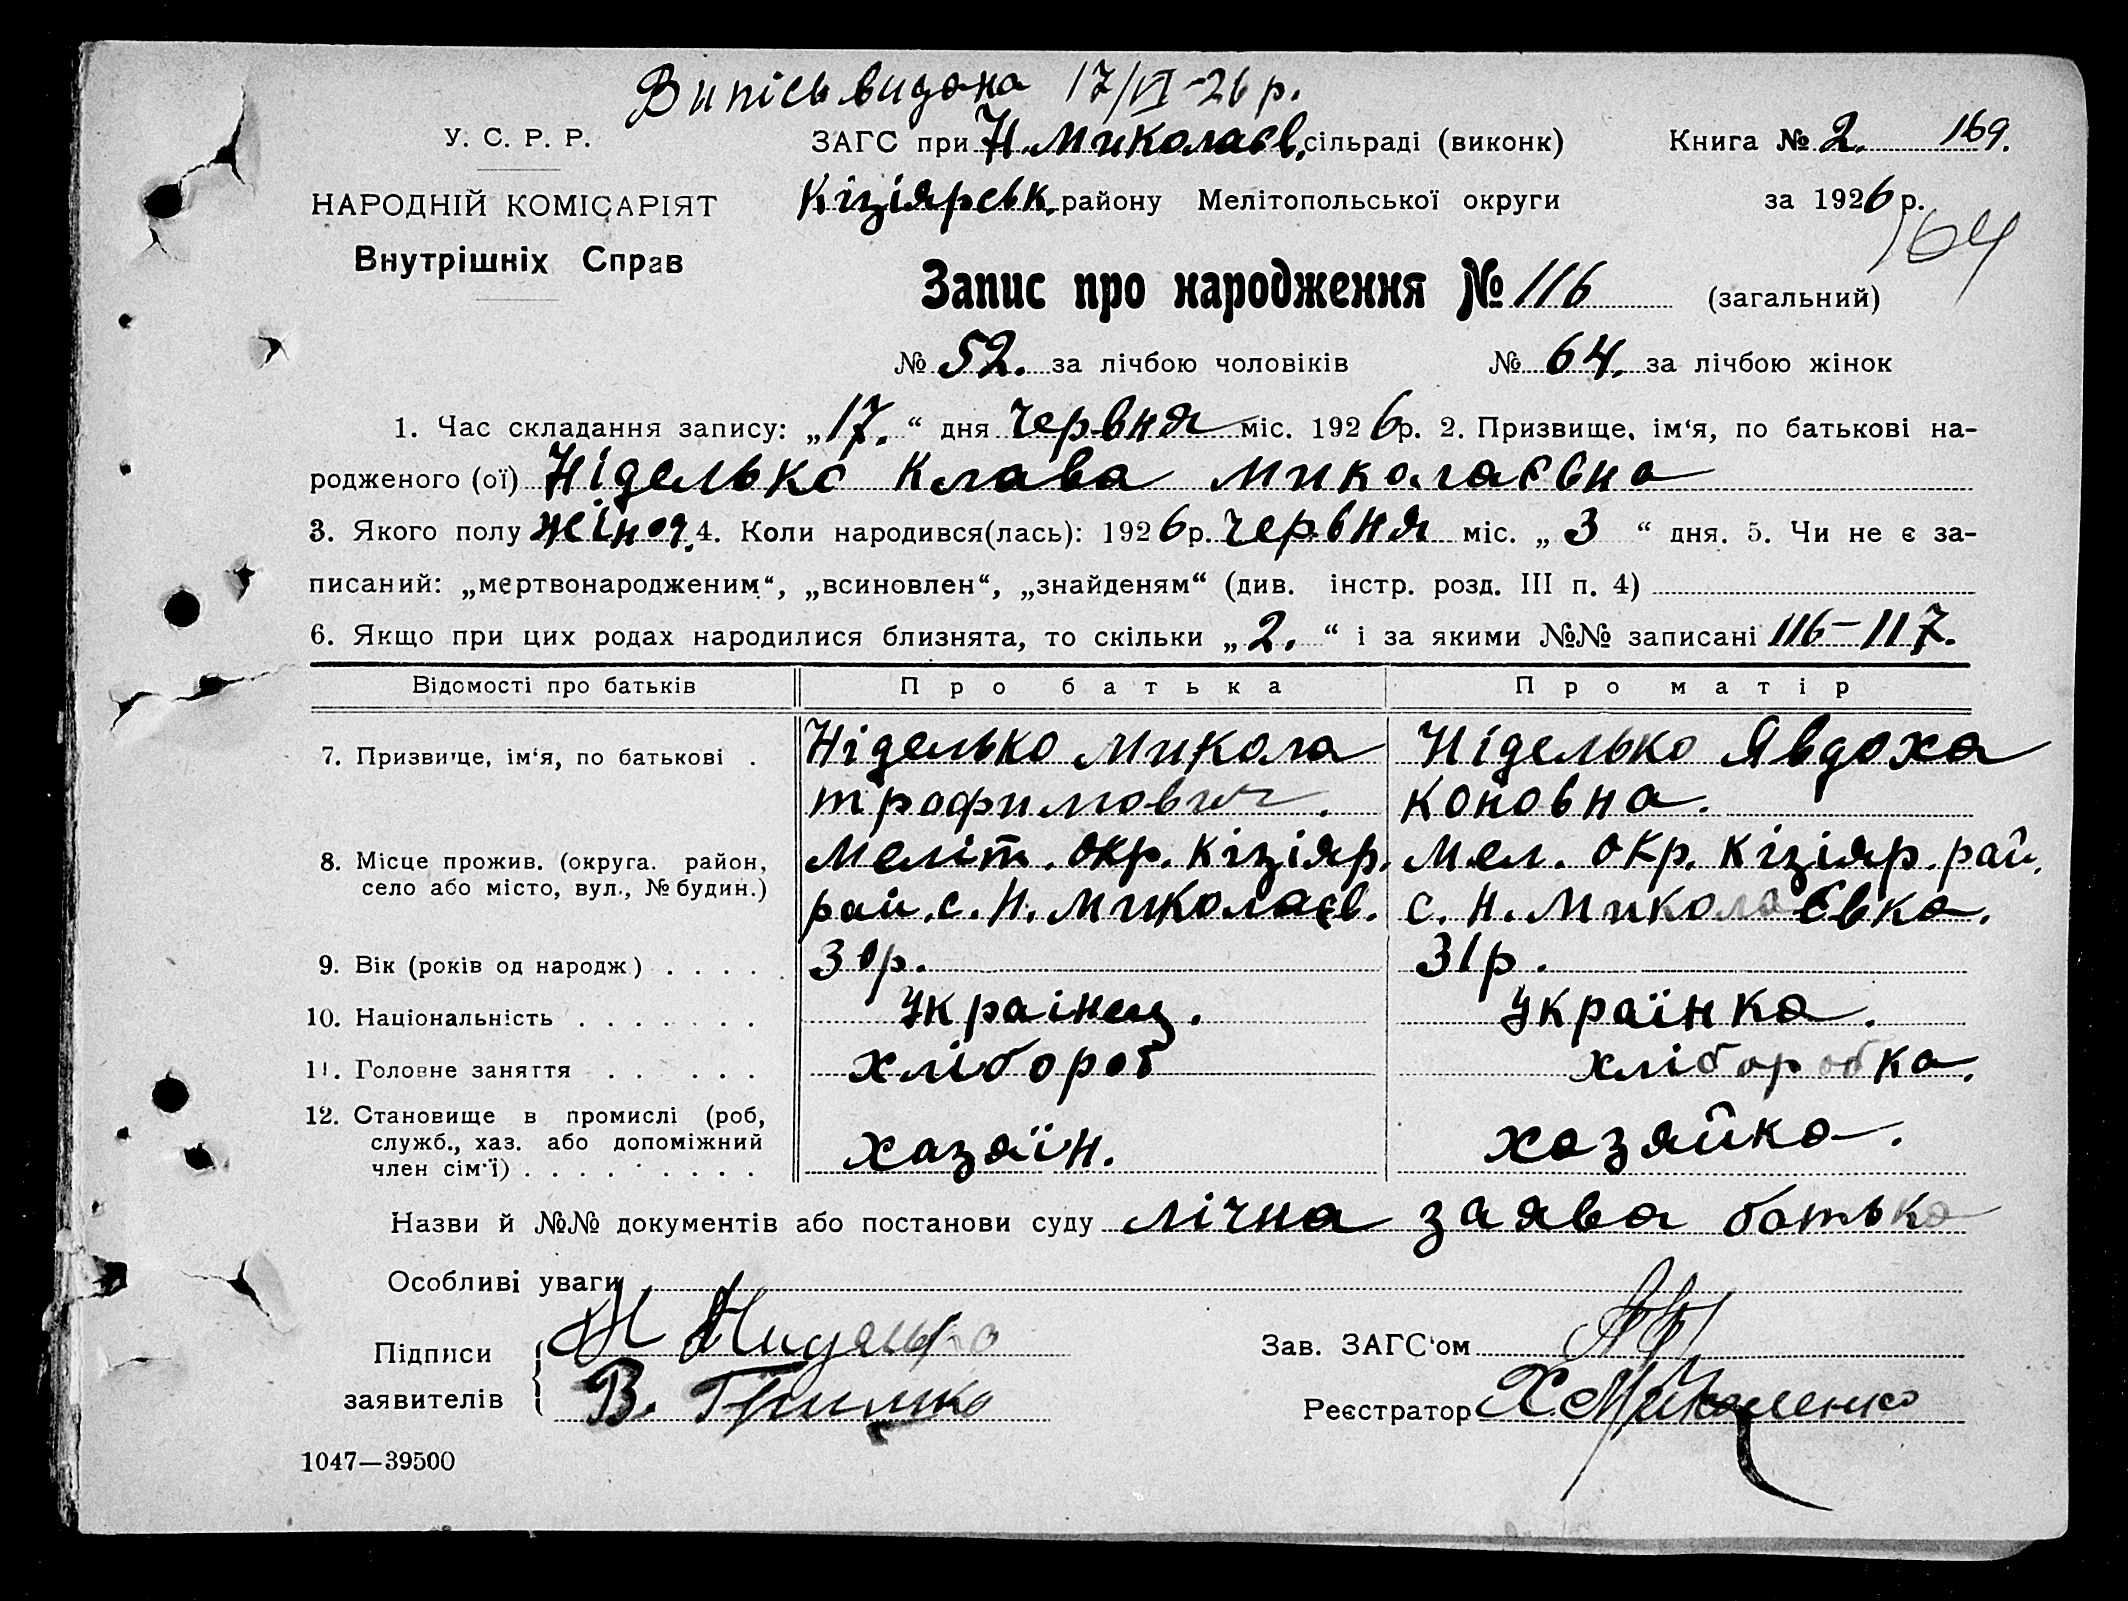 Випісь видана 17/VI-26 р.
У. С. Р. Р.
ЗАГС при Н. Миколаєв. сільраді (виконк)
Книга № 2. 169.
НАРОДНІЙ КОМІСАРІЯТ
Кізіярськ. району Мелітопольської округи
за 1926 р.
164
Внутрішніх Справ
Запис про народження № 116 (загальний)
№ 52. за лічбою чоловіків № 64. за лічбою жінок
1. Час складання запису: „17.“ дня червня міс. 1926 р. 2. Призвище, ім‘я, по батькові на-
родженого (ої) Ніделько Клава Миколаєвна
3. Якого полу жіноч. 4. Коли народився(лась): 1926 р. червня міс. „3“ дня. 5. Чи не є за-
писаний: „мертвонародженим“, „всиновлен“, „знайденям“ (див. інстр. розд. III п. 4)
6. Якщо при цих родах народилися близнята, то скільки „2.“ і за якими №№ записані 116-117.
Відомості про батьків Про батька Про матір
7. Призвище, ім‘я, по батькові . Ніделько Микола Ніделько Явдоха
трофимович. Коновна.
8. Місце прожив. (округа. район, Меліт. окр. Кізіяр. Мел. окр. Кізіяр. рай.
село або місто, вул., № будин.) рай. с. Н. Миколаєв. с. Н. Миколаєвка.
9. Вік (років од народж) . . . . . 30р. 31р.
10. Національність . . . . . . . Українец. Українка.
11. Головне заняття . . . . . . хлібороб хліборобка.
12. Становище в промислі (роб,
служб., хаз. або допоміжний хазяїн. хазяйка.
член сім‘ї) . . . . . . . . .
Назви й №№ документів або постанови суду лічна заява батька
Особливі уваги
Підписи Н Нидялько Зав. ЗАГС‘ом
заявителів В. Гримко Реєстратор Х Миколенко
1047—39500